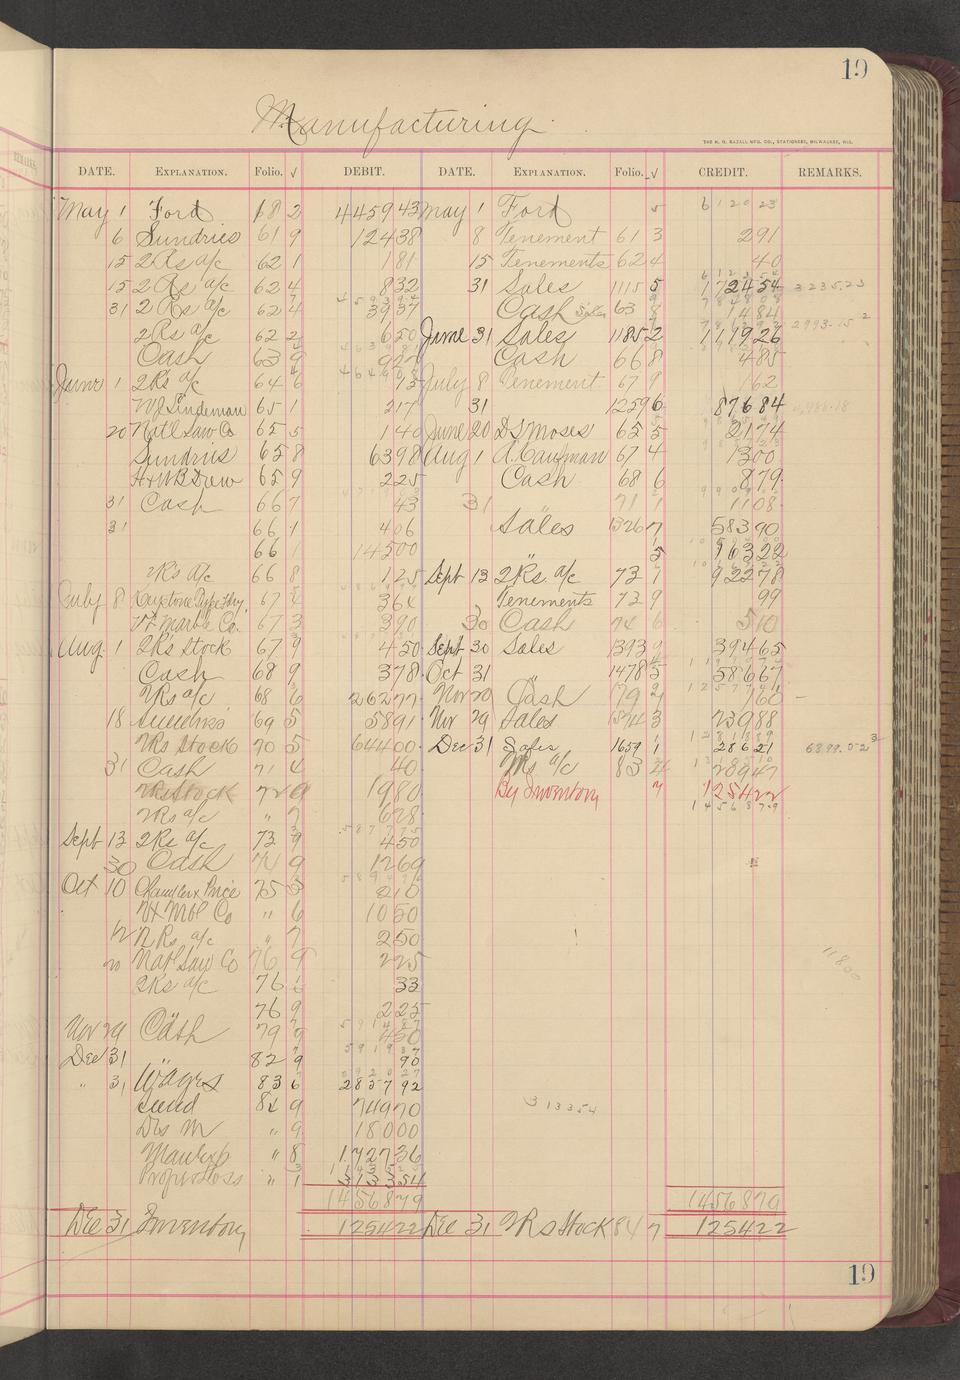 19
Manufacturing
THE H. G. RAZALL MFG. CO., STATIONERS, MILWAUKEE, WIS.
DATE. EXPLANATION. Folio. √ DEBIT. DATE. EXPLANATION. Folio. √ CREDIT. REMARKS.
May 1 Ford 68 2 445943 May 1 Ford 5 612023
6 Sundries 61 9 12438 8 Tenement 61 3 291
15 2Rs a/c 62 1 181 15 Tenements 62 4 40
15 2Rs a/c 62 4 832 31 Sales 1115 5 172454 3235.23
31 2Rs a/c 62 4 3937 Cash Sales 63 8 1484
2Rs a/c 62 2 650 June 31 Sales 1185 2 111926 2993.15
Cash 63 9 Cash 66 8 485
June 1 2Rs a/c 64 6 15 July 8 Tenement 67 9 162
W J Lindeman 65 1 217 31 1259 6 87684
20 Natl Saw Co 65 5 140 June 20 D S Moses 65 5 2174
Sundries 65 8 6398 Aug 1 A. Caufman 67 4 1300
H & W B Drew 65 9 225 Cash 68 6 879
31 Cash 66 7 43 31 71 1 1108
31 66 1 406 Sales 1326 7 58390
66 1 14500 5 16322
2Rs a/c 66 8 125 Sept 13 2Rs a/c 73 7 92278
July 8 Keystone Type Fdry. 67 4 364 Tenements 73 9 99
Vt Marble Co. 67 3 390 30 Cash 74 6 510
Aug 1 2Rs Stock 67 9 450 Sept 30 Sales 1393 9 39465
Cash 68 9 378 Oct 31 " 1478 5 58667
2Rs a/c 68 6 26277 Nov 29 Cash 79 2 760
18 Sundries 69 5 5891 Nov 29 Sales 1574 3 73988
2Rs Stock 70 5 64400 Dec 31 Sales 1659 1 28621 6899.02
31 Cash 71 4 40 2Rs a/c 83 4 20947
2Rs Stock 72 9 1980 By Inventory 7 125422
2Rs a/c " 7 628 1456879
Sept 13 2Rs a/c 73 9 450
30 Cash 74 9 1269
Oct 10 Chandler & Price 75 3 210
Vt Mbl Co " 6 1050
12 2Rs a/c " 7 250
20 Natl Saw Co 76 9 225
2Rs a/c 76 33
76 9 225
Nov 29 Cash 79 9 450
Dec 31 " 82 9 90
" 31 Wages 83 6 285792
Sund 84 9 74970
Dis M " 9 18000
Manf Exp " 8 172736
Prop & Loss " 1 313354
313354
1456879 1456879
Dec 31 Inventory 125422 Dec 31 2Rs Stock 84 7 125422
11800
19